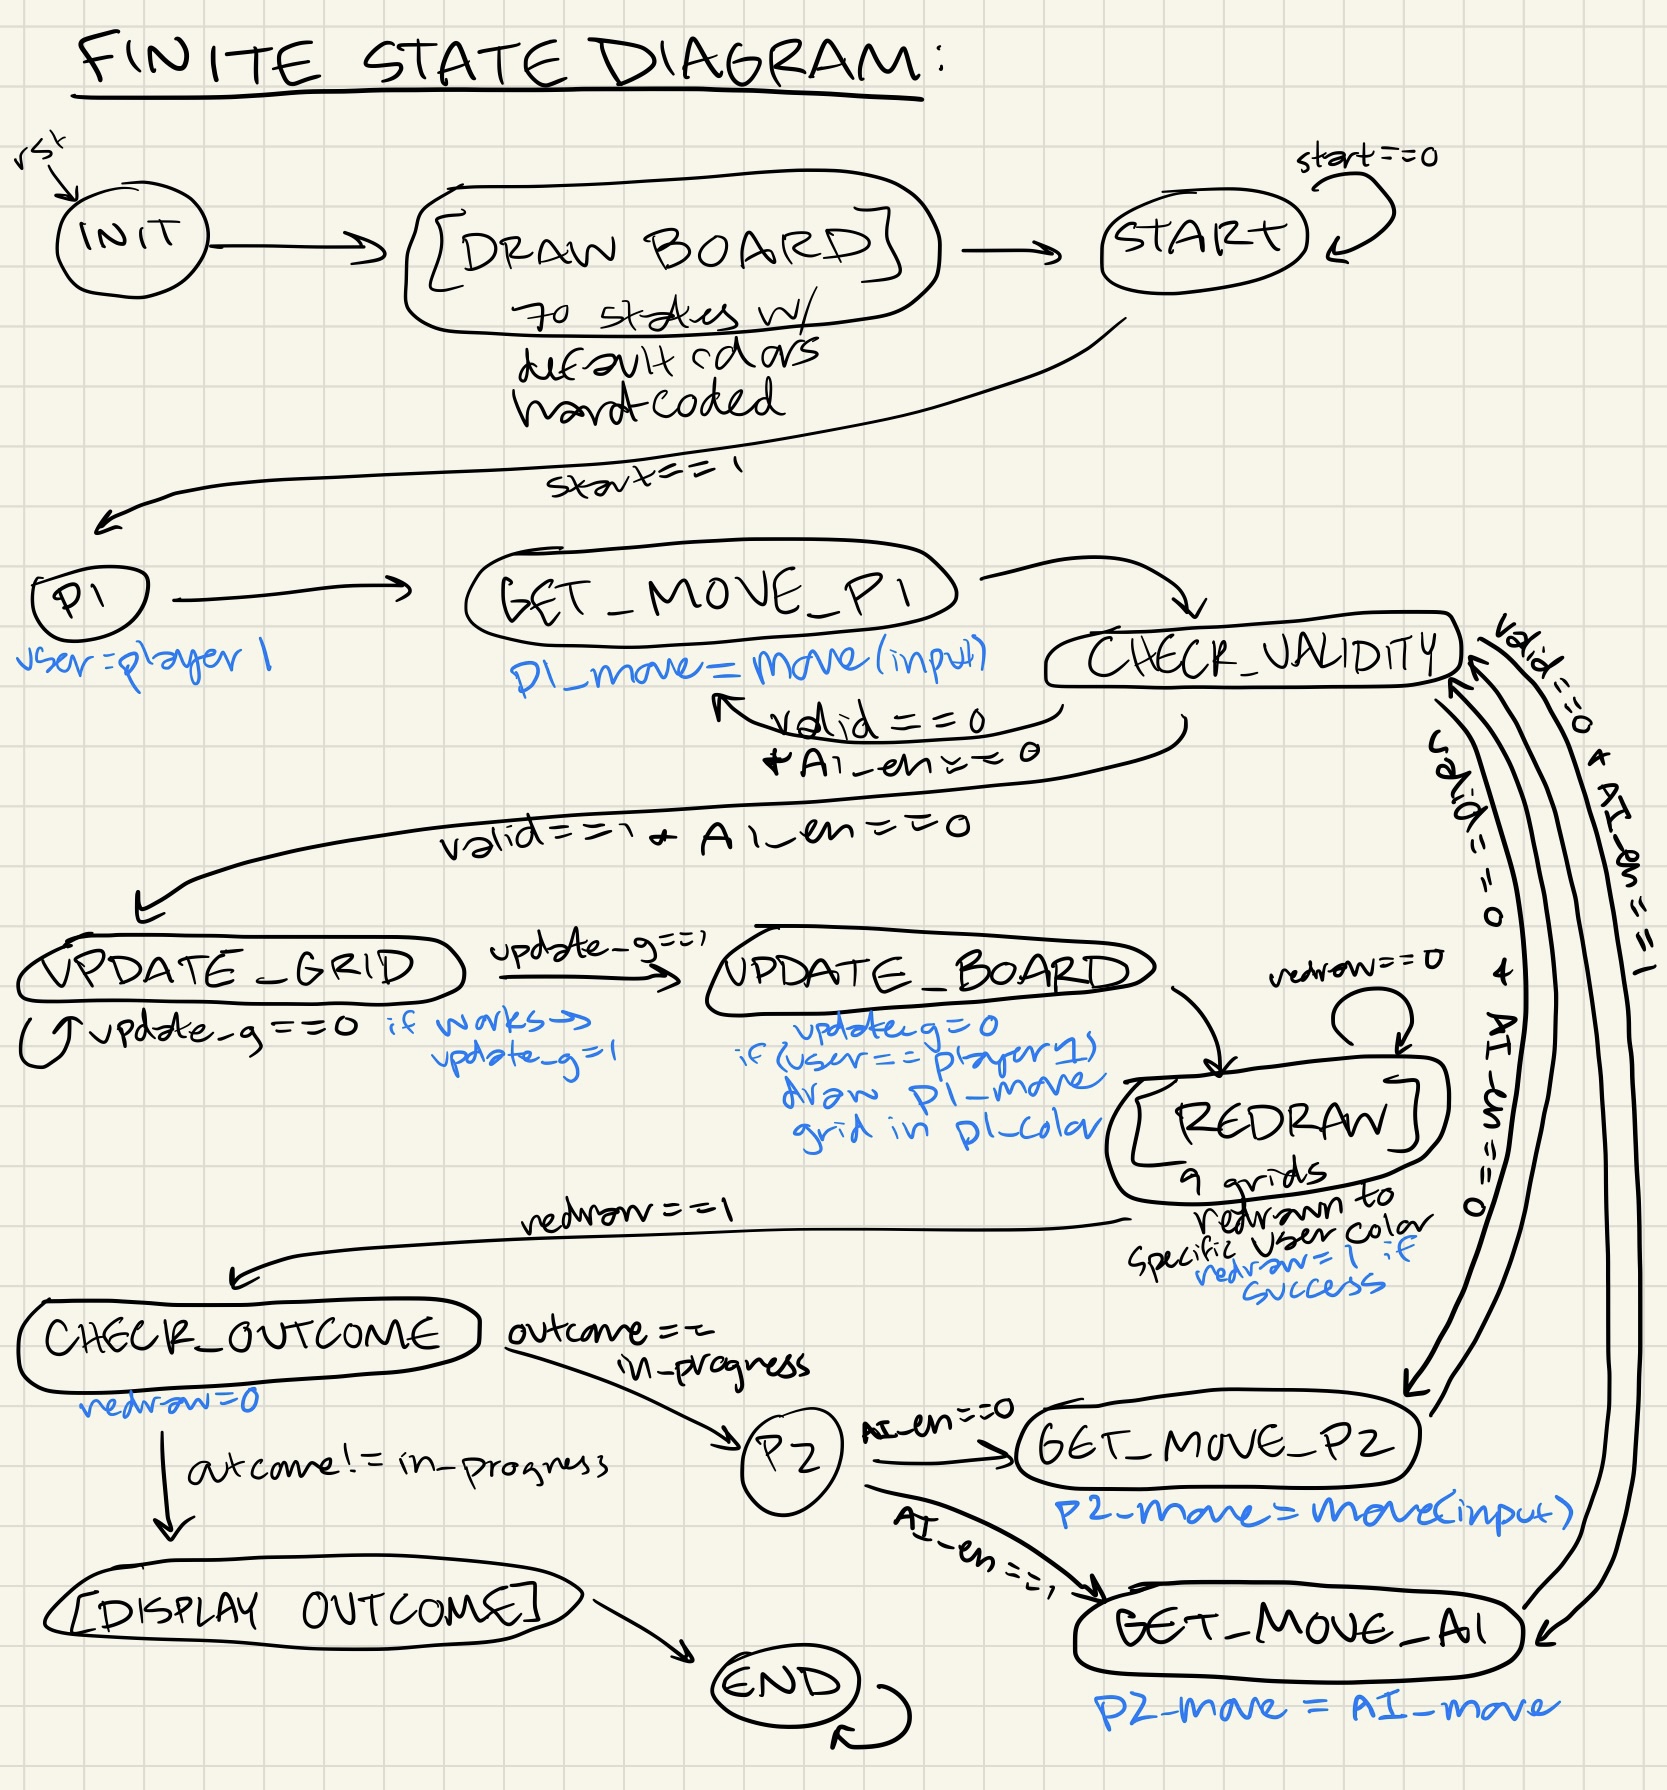 FINITE STATE DIAGRAM:
rst
INIT
[DRAW BOARD]
70 states w/
default colors
hardcoded
START
start==0
start==1
P1
user=player1
GET_MOVE_P1
P1_move=move(input)
CHECK_VALIDITY
valid==0
+ AI_en==0
valid==1 + AI_en==0
valid==0 + AI_en==1
valid==0 + AI_en==0
UPDATE_GRID
update_g==0
if works→
update_g=1
update_g==1
UPDATE_BOARD
update_g=0
if (user==player1)
draw p1_move
grid in p1_color
redraw==0
[REDRAW]
9 grids
redrawn to
specific user color
redraw=1 if
success
redraw==1
CHECK_OUTCOME
redraw=0
outcome==
in_progress
outcome!=in_progress
P2
AI_en==0
GET_MOVE_P2
P2_move=move(input)
AI_en==1
[DISPLAY OUTCOME]
GET_MOVE_AI
P2_move = AI_move
END